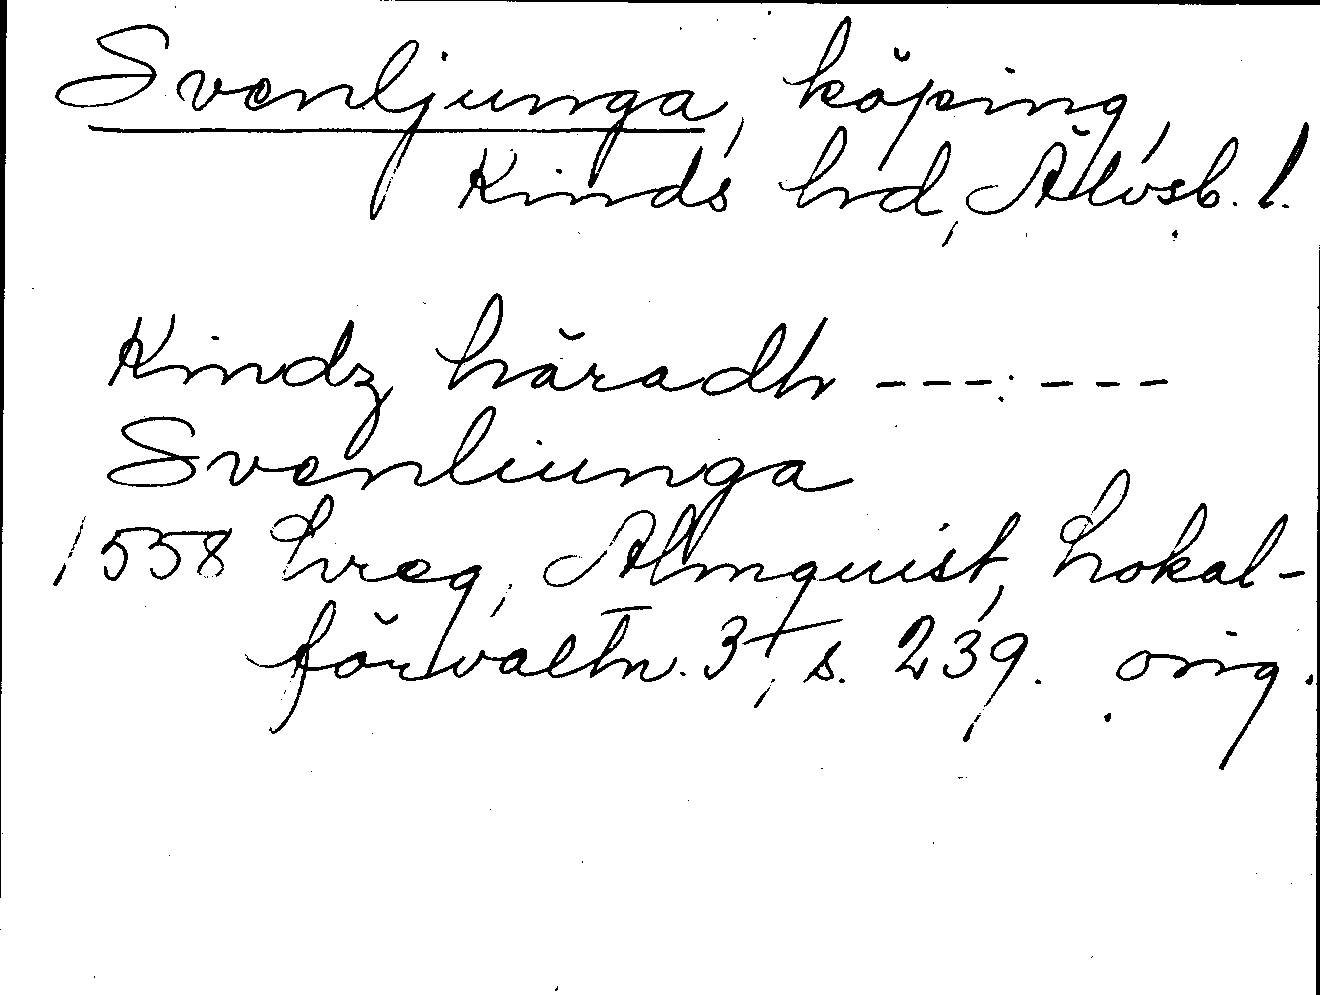 Svenljunga, köping,
Kinds hd, Älvsb. l.
Kindz häradh --- : ---
Svenliunga
1558 hreg, Almquist, Lokal-
förvaltn. 3†, s. 239. orig.